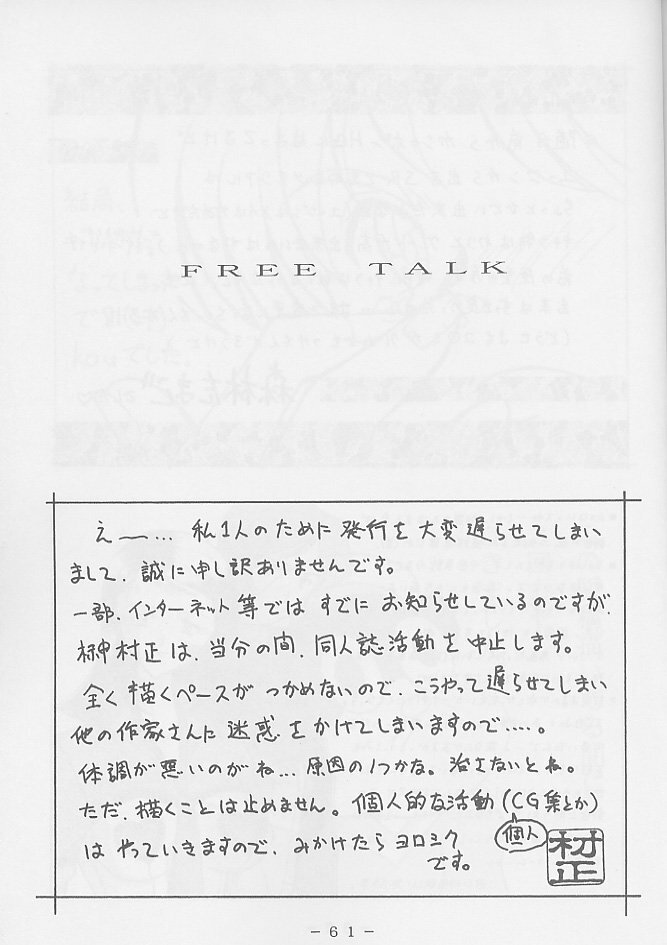 FREE TALK
えー… 私1人のために発行を大変遅らせてしまい
まして、誠に申し訳ありませんです。
一部、インターネット等ではすでにお知らせしているのですが、
榊村正は、当分の間、同人誌活動を中止します。
全く描くペースがつかめないので、こうやって遅らせてしまい
他の作家さんに迷惑をかけてしまいますので……。
体調が悪いのがね… 原因の1つかな。治さないとね。
ただ、描くことは止めません。個人的な活動(CG集とか)
個人
はやっていきますので、みかけたらヨロシク
です。
村正
-61-